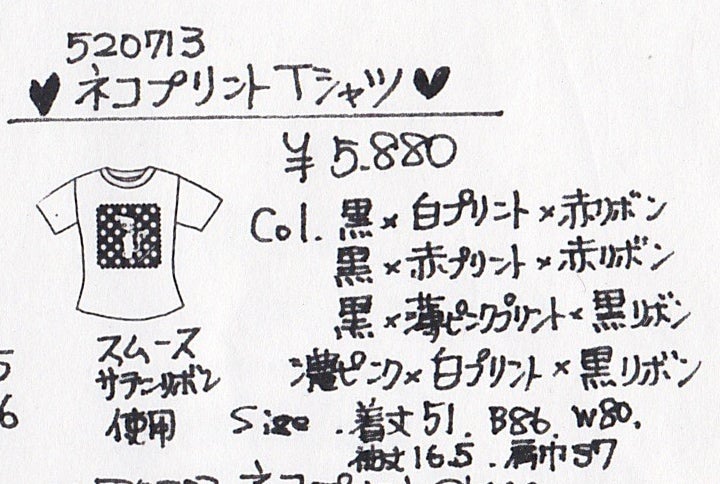 520713
♥ネコプリントTシャツ♥
¥5.880
Col. 黒×白プリント×赤リボン
黒×赤プリント×赤リボン
黒×薄ピンクプリント×黒リボン
濃ピンク×白プリント×黒リボン
スムース
サテンリボン
使用
Size . 着丈51. B86. W80.
袖丈16.5. 肩巾37
5
6